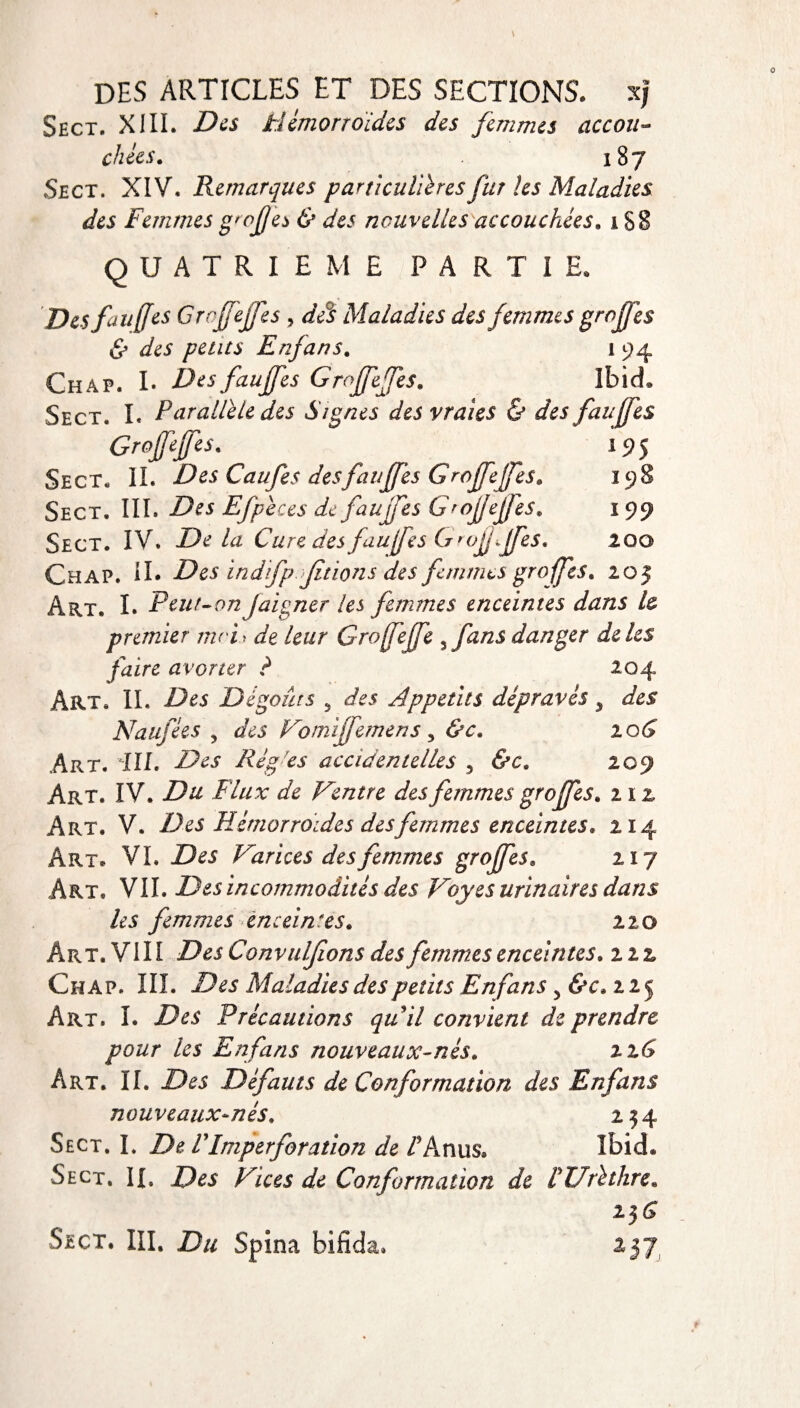 DES ARTICLES ET DES SECTIONS. xj
SECT. XIII. Des Hémorroïdes des femmes accou-
chées. 187
SECT. XIV. Remarques particulières ſur les Maladies
des Femmes groſſes & des nouvelles accouchées. 188
QUATRIEME PARTIE.
Des fauſſes Groſſeſſes, des Maladies des femmes groſſes
& des petits Enfans. 194
CHAP. I. Des fauſſes Groſſeſſes. Ibid.
SECT. I. Parallèle des Signes des vraies & des fauſſes
Groſſeſſes. 195
SECT. II. Des Cauſes des fauſſes Groſſeſſes. 198
SECT. III. Des Eſpèces de fauſſes Groſſeſſes. 199
SECT. IV. De la Cure des fauſſes Groſſeſſes. 200
CHAP. II. Des indiſpoſitions des femmes groſſes. 203
ART. I. Peut-on ſaigner les femmes enceintes dans le
premier mois de leur Groſſeſſe, ſans danger de les
faire avorter ? 204
ART. II. Des Dégoûts, des Appetits dépravés, des
Nauſées, des Vomiſſemens, &c. 206
ART. III. Des Régles accidentelles, &c. 209
ART. IV. Du Flux de Ventre des femmes groſſes. 212
ART. V. Des Hémorroïdes des femmes enceintes. 214
ART. VI. Des Varices des femmes groſſes. 217
ART. VII. Des incommodités des Voyes urinaires dans
les femmes enceintes. 220
ART. VIII Des Convulſions des femmes enceintes. 222
CHAP. III. Des Maladies des petits Enfans, &c. 225
ART. I. Des Précautions qu'il convient de prendre
pour les Enfans nouveaux-nés. 226
ART. II. Des Défauts de Conformation des Enfans
nouveaux-nés. 234
SECT. I. De l'Imperforation de l'Anus. Ibid.
SECT. II. Des Vices de Conformation de l'Urèthre.
236
SECT. III. Du Spina bifida. 237